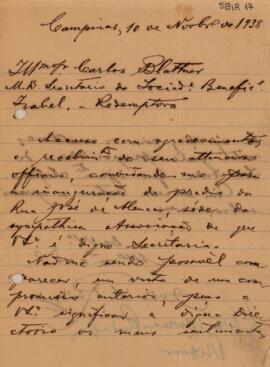 SBIR 17
Campinas, 10 de Novbr. de 1938
Illmo Snr Carlos Blattner
M. D. Secretario da Socied. Benefic.
Isabel, a Redemptora
Accuso com agradecimentos
o recebimto do seu attencioso
officio, convidando-me para
a inauguração do predio da
Rua José de Alencar, séde da
sympathica Associação de que
V. S. é digno Secretario.
Não me sendo possivel com-
parecer, em vista de um com-
promisso anterior, peço a
V. S. significar a digna Dire-
ctoria os meus